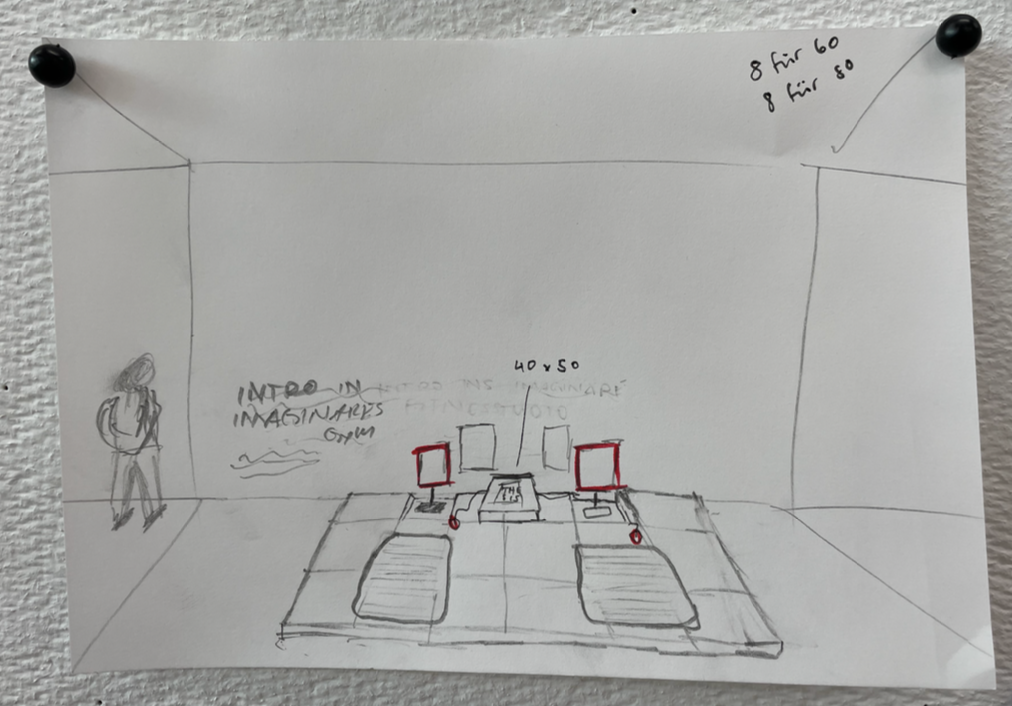 8 für 60
8 für 80
40 x 50
INTRO IN
IMAGINARES
GYM
INTRO INS IMAGINARE
FITNESSTUDIO
THE